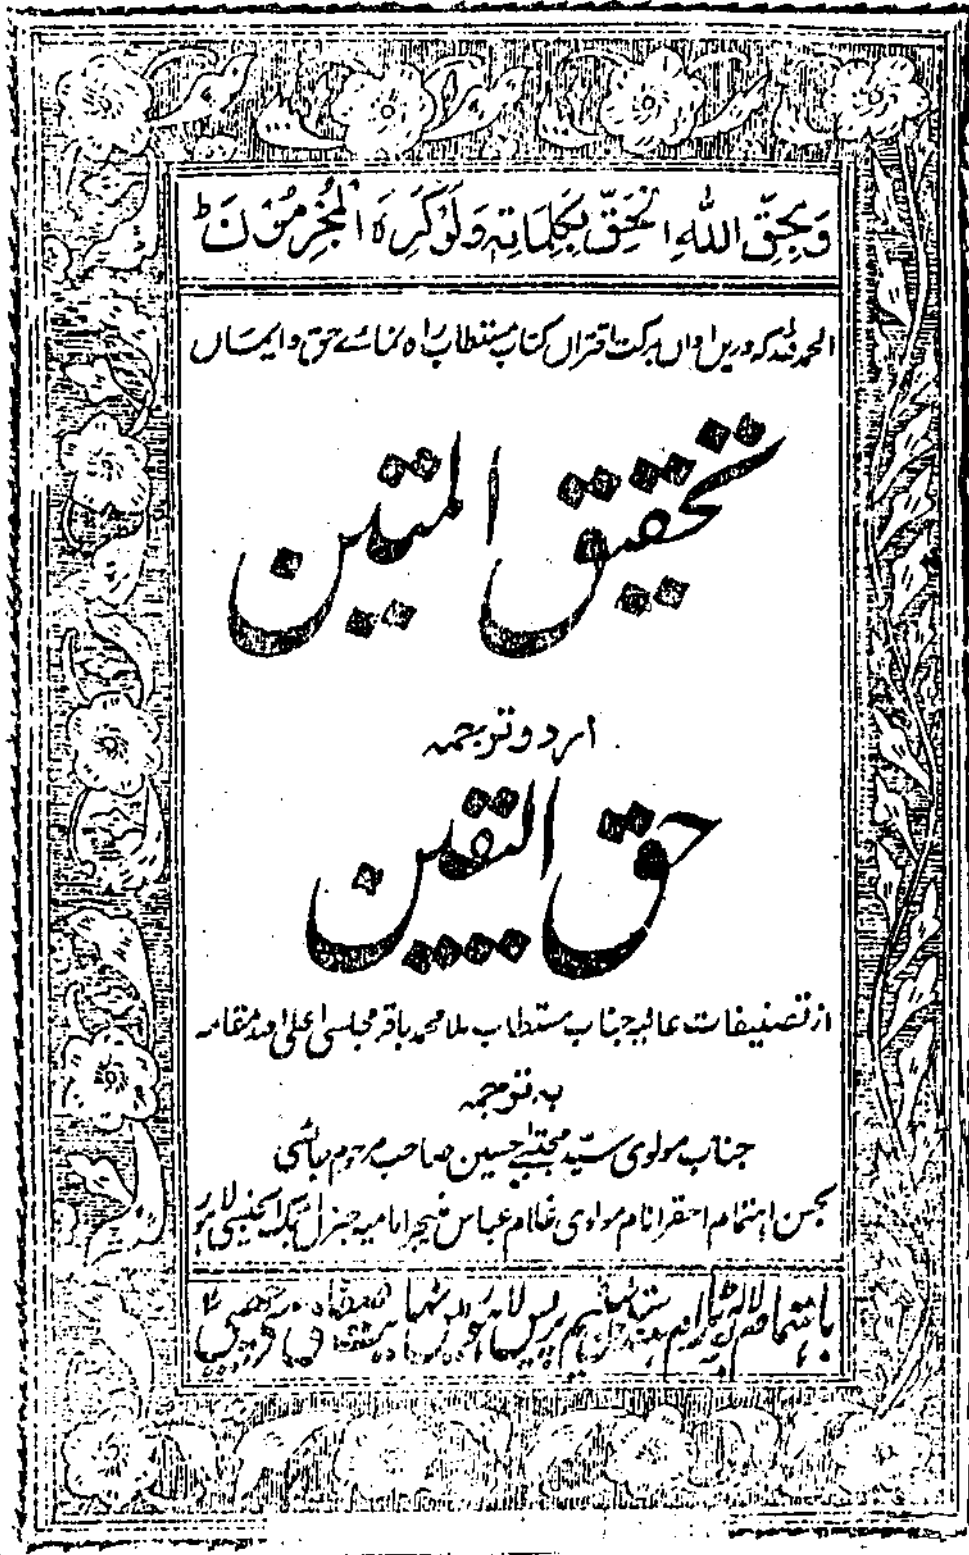 وَيُحِقُّ اللّٰهِ الْحَقَّ بِكَلِمَاتِهٖ وَلَوْ كَرِهَ الْمُجْرِمُوْنَ ط
الحمد للہ کہ دریں اواں برکت اقتراں کتاب مستطاب راہ نمائے حق و ایمان
تحقیق المتین
اردو ترجمہ
حق الیقین
از تصنیفات عالیجناب مستطاب ملا محمد باقر مجلسی اعلی اللہ مقامہ
بہ ترجمہ
جناب مولوی سید مجتبےٰ حسین صاحب مرحوم
بحسن اہتمام احقر انام مولوی غلام عباس منیجر امامیہ جنرل بک ایجنسی لاہور
باہتمام لالہ سٹیم پریس لاہور